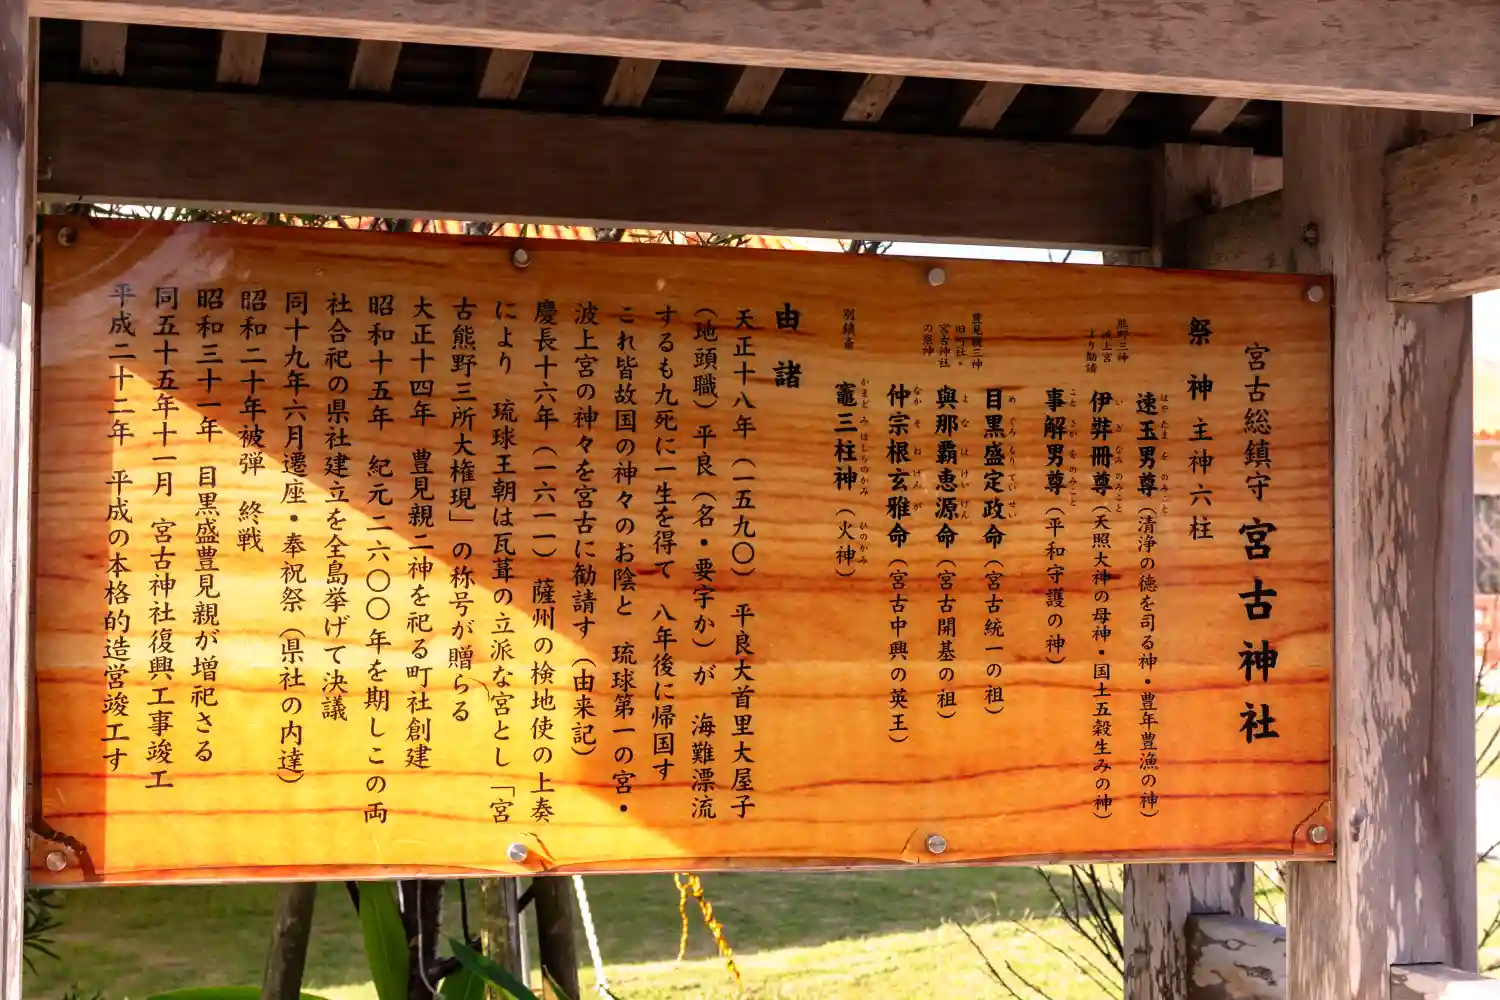 宮古総鎮守 宮古神社
祭神 主神六柱
熊野三神
波上宮
より勧請
はやたまをのみこと
速玉男尊（清浄の徳を司る神・豊年豊漁の神）
いざなみのみこと
伊弉冊尊（天照大神の母神・国土五穀生みの神）
ことさかをのみこと
事解男尊（平和守護の神）
豊見親三神
旧町社・
宮古神社
の祭神
めぐろもりていせい
目黒盛定政命（宮古統一の祖）
よなはけいげん
與那覇恵源命（宮古開基の祖）
なかそねげんが
仲宗根玄雅命（宮古中興の英王）
別鎮座
かまどみはしらのかみ ひのかみ
竈三柱神（火神）
由諸
天正十八年（一五九〇） 平良大首里大屋子
（地頭職）平良（名・要字か）が 海難漂流
するも九死に一生を得て 八年後に帰国す
これ皆故国の神々のお陰と 琉球第一の宮・
波上宮の神々を宮古に勧請す（由来記）
慶長十六年（一六一一） 薩州の検地使の上奏
により 琉球王朝は瓦葺の立派な宮とし「宮
古熊野三所大権現」の称号が贈らる
大正十四年 豊見親二神を祀る町社創建
昭和十五年 紀元二六〇〇年を期しこの両
社合祀の県社建立を全島挙げて決議
同十九年六月遷座・奉祝祭（県社の内達）
昭和二十年被弾 終戦
昭和三十一年 目黒盛豊見親が増祀さる
同五十五年十一月 宮古神社復興工事竣工
平成二十二年 平成の本格的造営竣工す